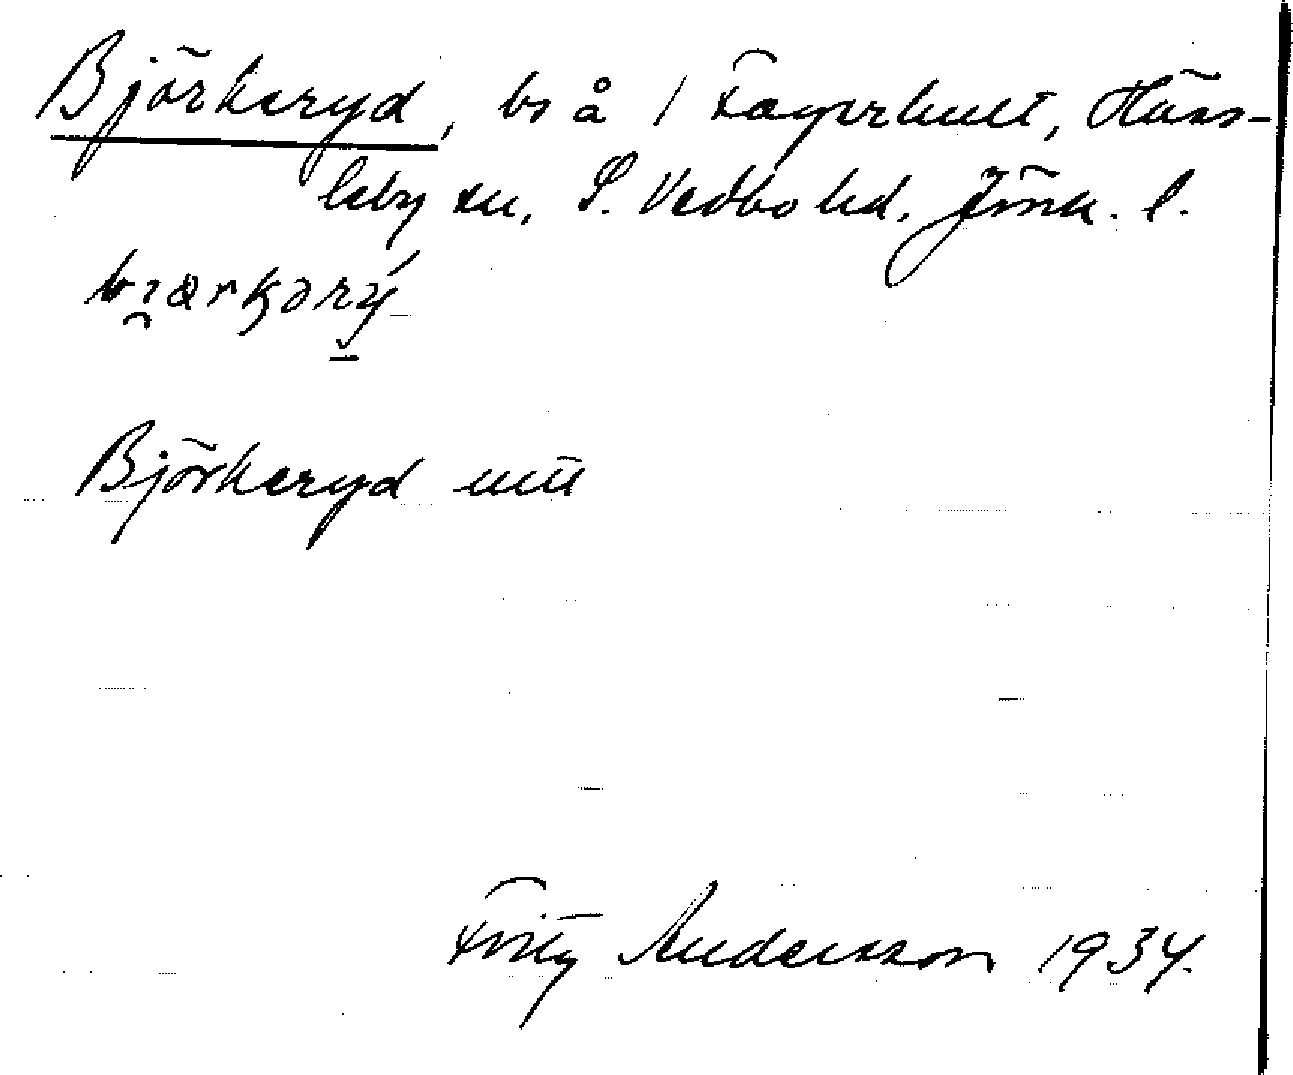 Björkeryd, bs å 1 Fagerhult, Häss-
leby sn, S. Vedbo hd, Jönk. l.
bi̯ærkąrý
Björkeryd utt
Fritz Andersson 1934.